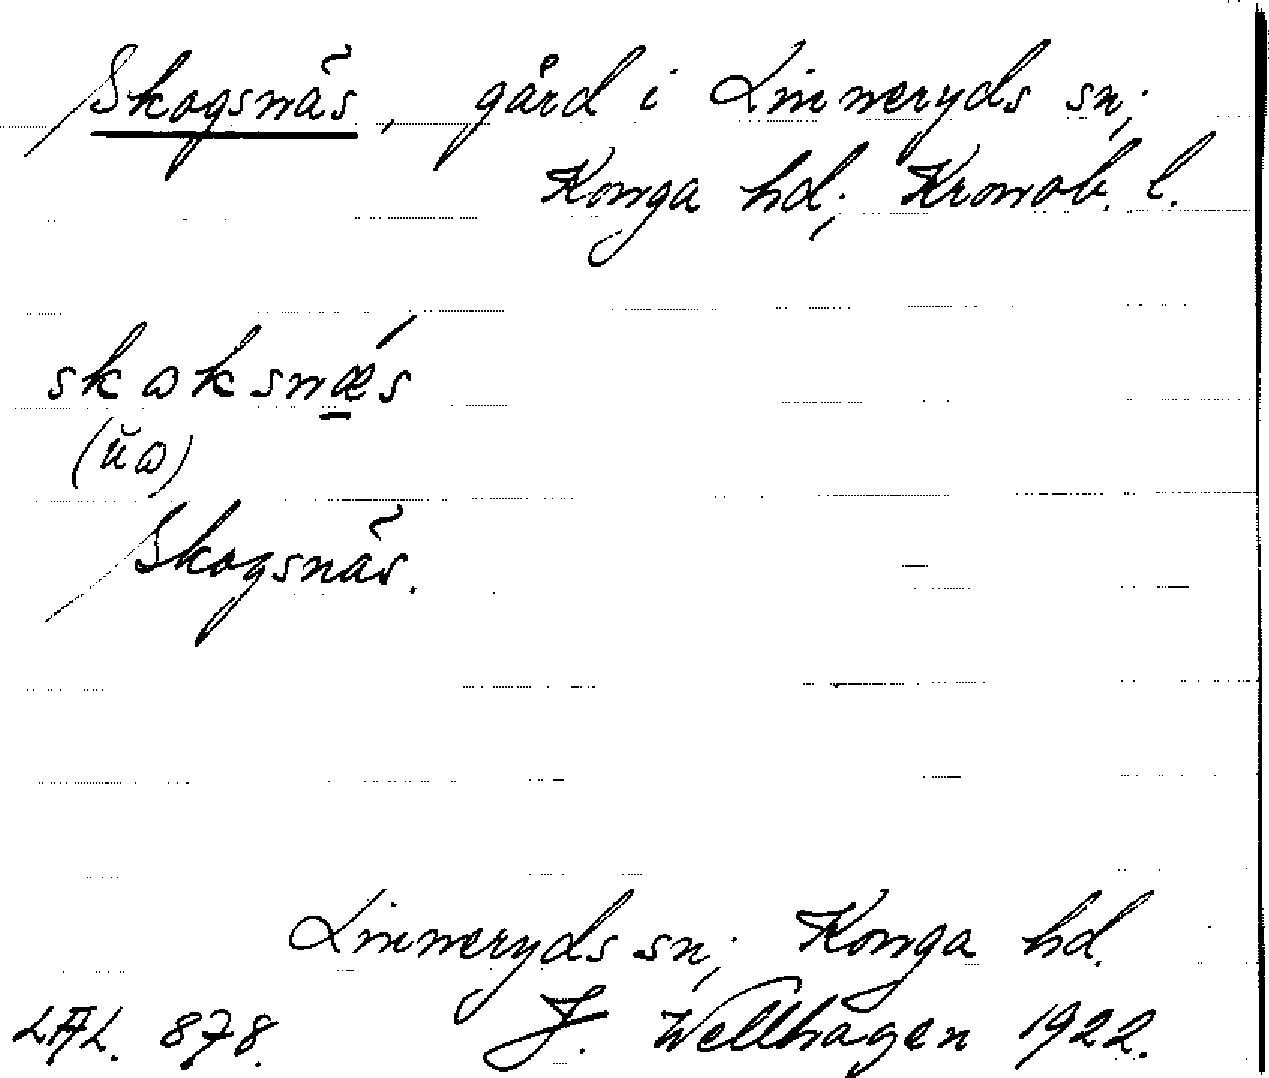 Skogsnäs, gård i Linneryds sn;
Konga hd; Kronob. l.
skɷksnǽs
(ŭɷ)
Skogsnäs.
Linneryds sn; Konga hd.
LAL. 878. J. Wellhagen 1922.